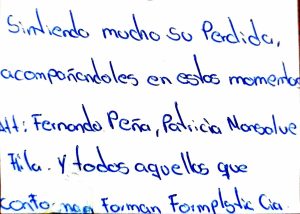 Sintiendo mucho su Perdida,
acompañandoles en estos momentos
Att: Fernando Peña, Patricia Monsalve
Fila. Y todos aquellos que
conforman Forman Formplastic Cia.